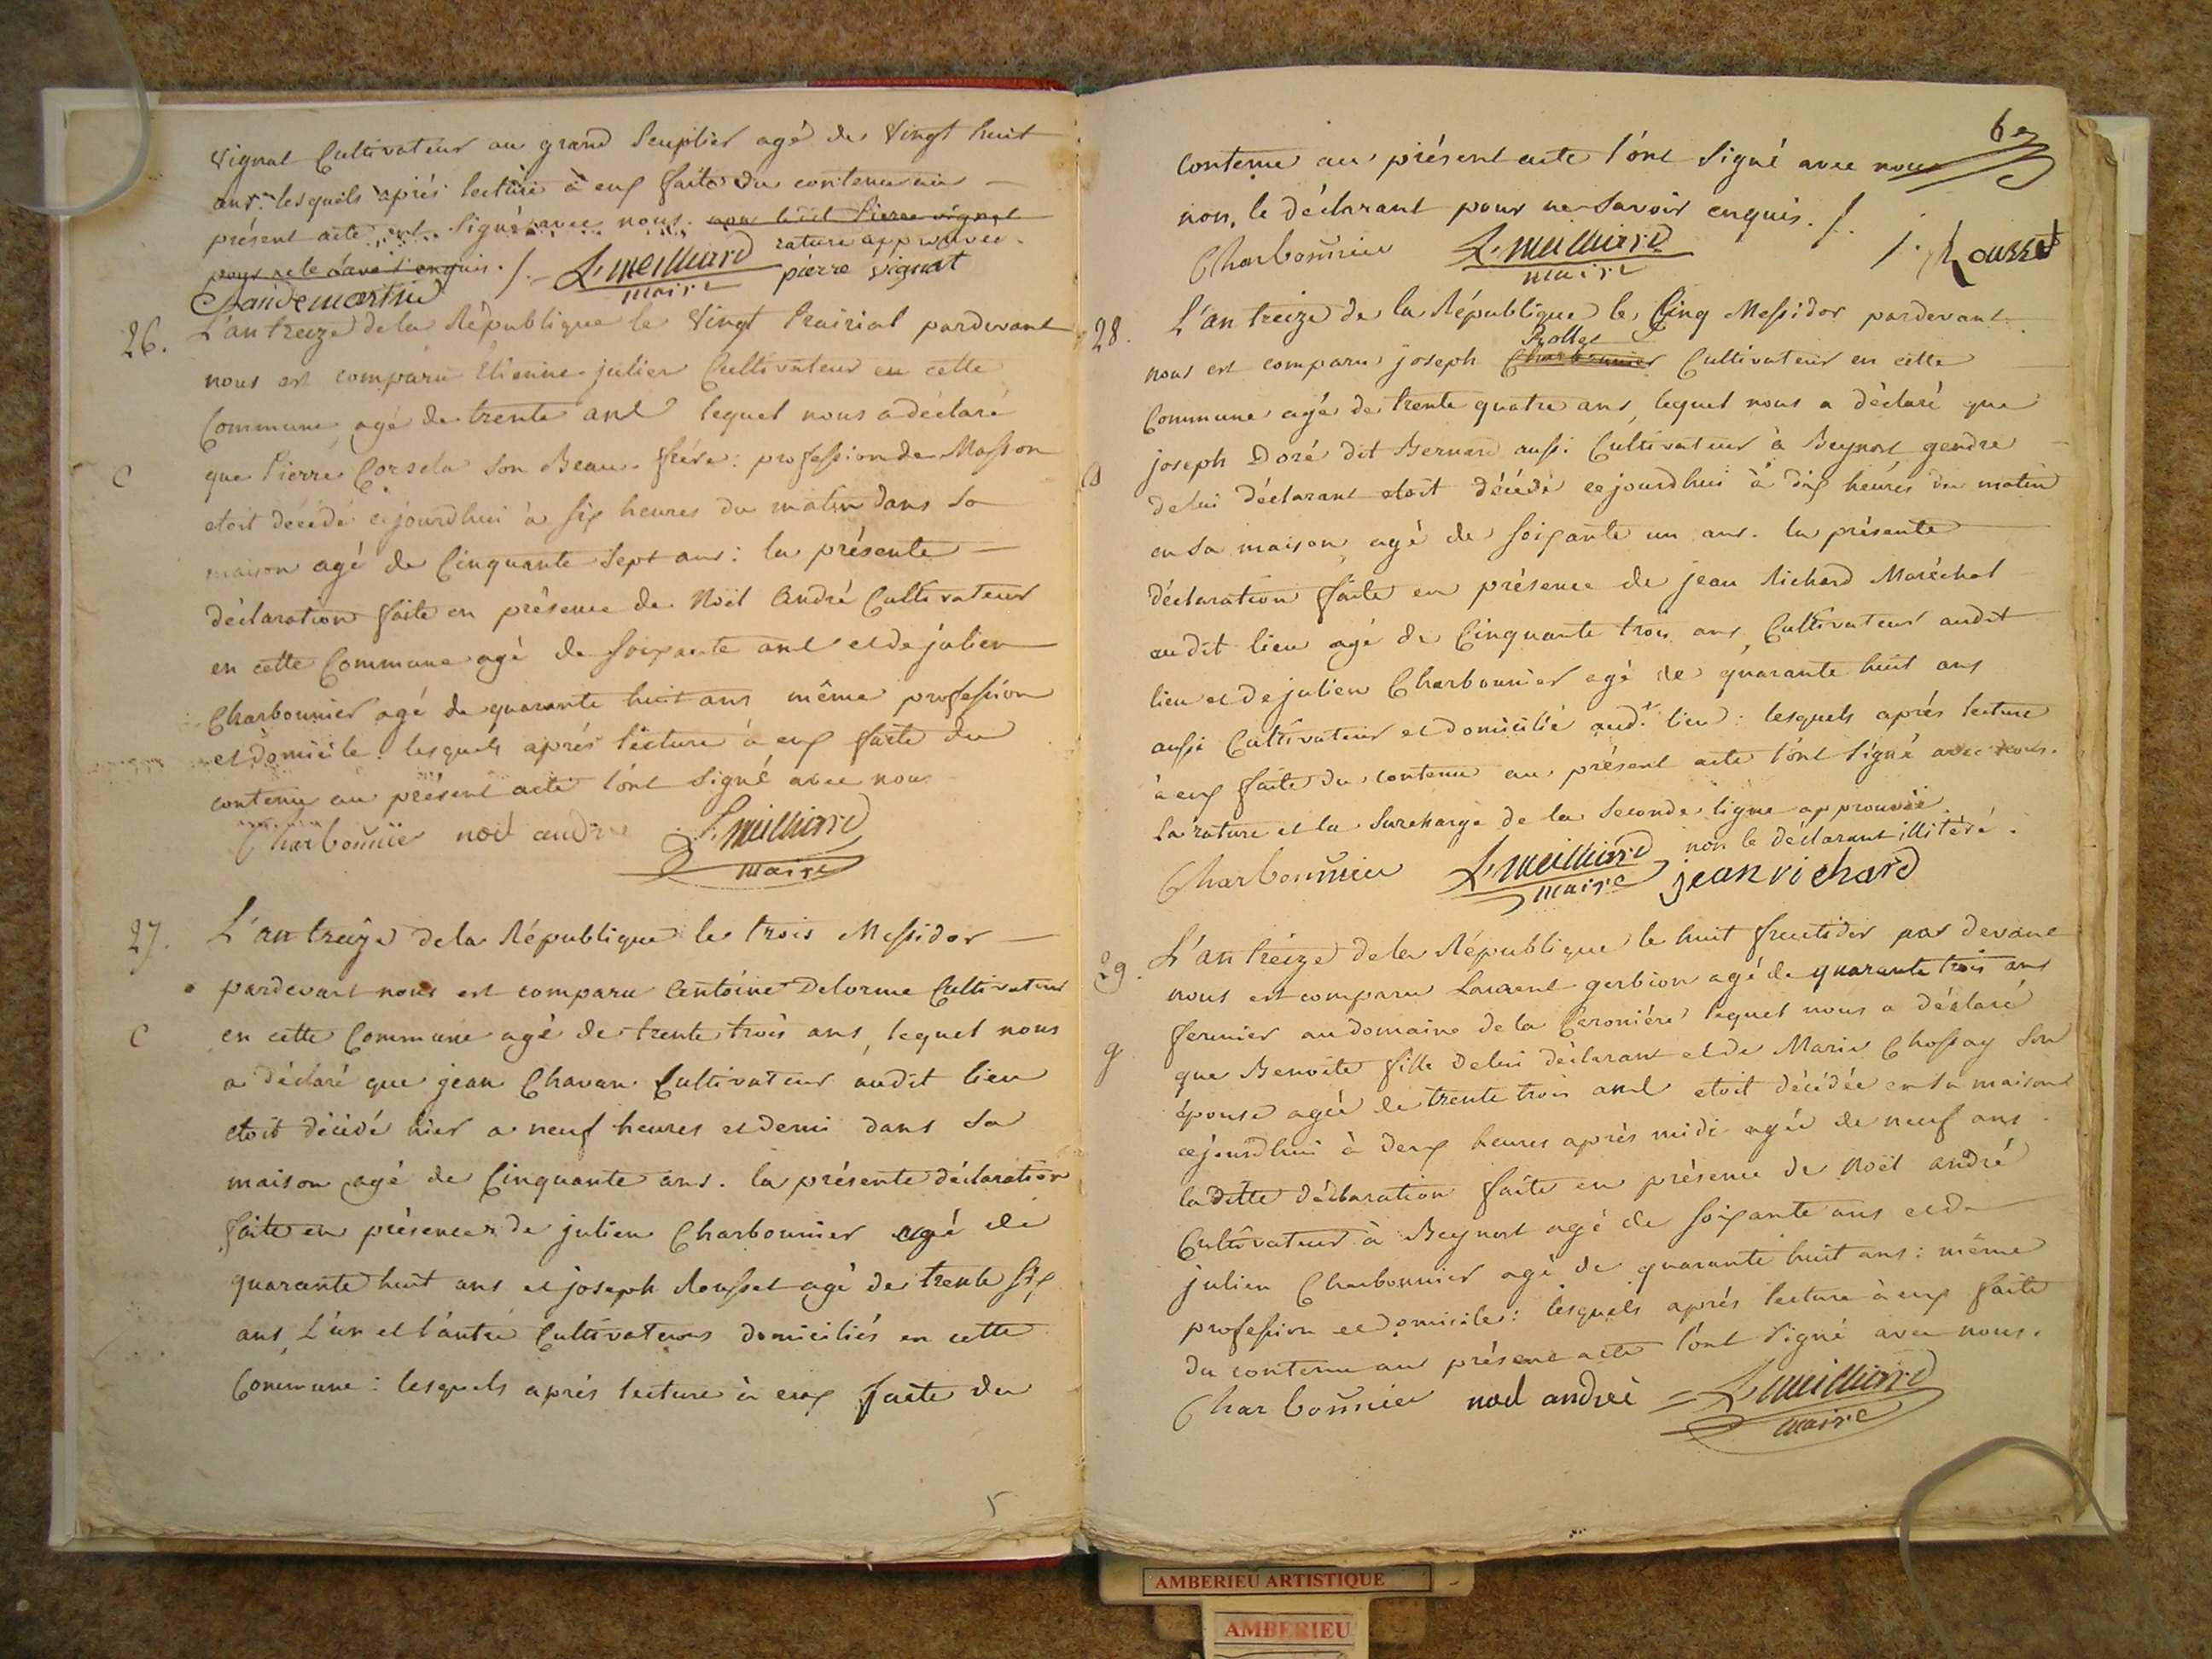 vignat Cultivateur au grand Peuplier agé de vingt huit
ans. lesquels aprés lecture à eux faite du contenu au
présent acte, ont signé avec nous. non ledit Pierre vignat
pour ne le savoir enquis. /. L. meilliard rature approuvée.
maire pierre vignat
Claude martin
26. L'an treize de la République le vingt Prairial pardevant
nous est comparu Etienne julier Cultivateur en cette
Commune, agé de trente ans lequel nous a déclaré
C que Pierre Corsela son Beau-frére: profession de Masson
etoit décédé cejourdhui à six heures du matin dans sa
maison agé de Cinquante sept ans: la présente
déclaration faite en présence de Noël André Cultivateur
en cette Commune agé de soixante ans et de julien
Charbonnier agé de quarante huit ans même profession
et domicile. lesquels aprés lecture à eux faite du
contenu au présent acte l'ont signé avec nous
Charbonnier noel andre L. meilliard
maire
27. L'an treize de la République le trois Messidor
pardevant nous est comparu Antoine Delorme Cultivateur
C en cette Commune agé de trente trois ans, lequel nous
a déclaré que jean Chavan Cultivateur audit lieu
etoit décédé hier a neuf heures et demi dans sa
maison agé de Cinquante ans. la présente déclaration
faite en présence de julien Charbonnier agé de
quarante huit ans et joseph Rousset agé de trente six
ans, L'un et l'autre Cultivateurs domiciliés en cette
Commune: lesquels aprés lecture à eux faite du
5
6e
contenu au présent acte l'ont signé avec nous
non, le déclarant pour ne savoir enquis. /.
Charbonnier L. meilliard J. Rousset
maire
28. L'an treize de la République le Cinq Messidor pardevant
Rollet
nous est comparu joseph Charbonnier Cultivateur en cette
Commune agé de trente quatre ans, lequel nous a déclaré que
joseph Doré dit Bernard aussi Cultivateur à Beynost gendre
de lui déclarant etoit décédé cejourdhui à dix heures du matin
en sa maison agé de soixante un ans. la présente
déclaration faite en présence de jean Richard Maréchal
audit lieu agé de Cinquante trois ans, Cultivateur audit
lieu et de julien Charbonnier agé de quarante huit ans
aussi Cultivateur et domicilié aud.t lieu: lesquels aprés lecture
à eux faite du contenu au présent acte l'ont signé avec nous.
la rature et la surcharge de la seconde ligne approuvée.
non le déclarant illitéré.
Charbonnier L. meilliard jean richard
maire
29. L'an treize de la République le huit fructidor par devant
nous est comparu Laurent gerbion agé de quarante trois ans
fermier au domaine de la Peroniére lequel nous a déclaré
g que Benoite fille de lui déclarant et de Marie Chossay son
épouse agée de trente trois ans etoit décédée en sa maison
cejourdhui à deux heures aprés midi agée de neuf ans
la ditte déclaration faite en présence de Noël andré
Cultivateur à Beynost agé de soixante ans et de
julien Charbonnier agé de quarante huit ans: même
profession et domicile: lesquels aprés lecture à eux faite
du contenu au présent acte l'ont signé avec nous.
Charbonnier noel andrée L. meilliard
maire
AMBERIEU ARTISTIQUE
AMBERIEU